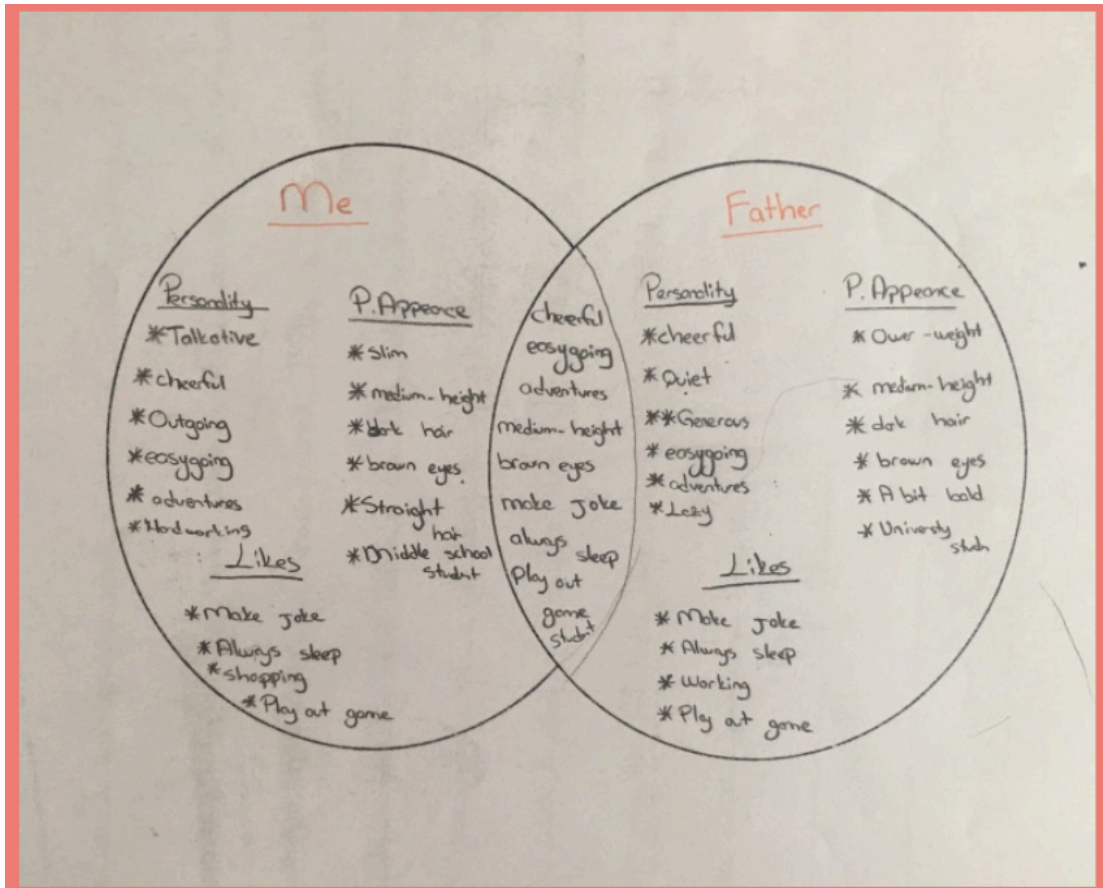 Me
Personality
*Talkative
*cheerful
*Outgoing
*easygoing
*adventures
*Hardworking
P. Appearance
*Slim
*medium-height
*dark hair
*brown eyes
*Straight
hair
*middle school
student
Likes
*Make joke
*Always sleep
*shopping
*Play out game
cheerful
easygoing
adventures
medium-height
brown eyes
make joke
always
sleep
Play out
game
student
Father
Personality
*cheerful
*Quiet
**Generous
*easygoing
*adventures
*Lazy
P. Appearance
*Ower-weight
*medium-height
*dark hair
*brown eyes
*A bit bald
*University
Likes
*Make joke
*Always sleep
*Working
*Play out game